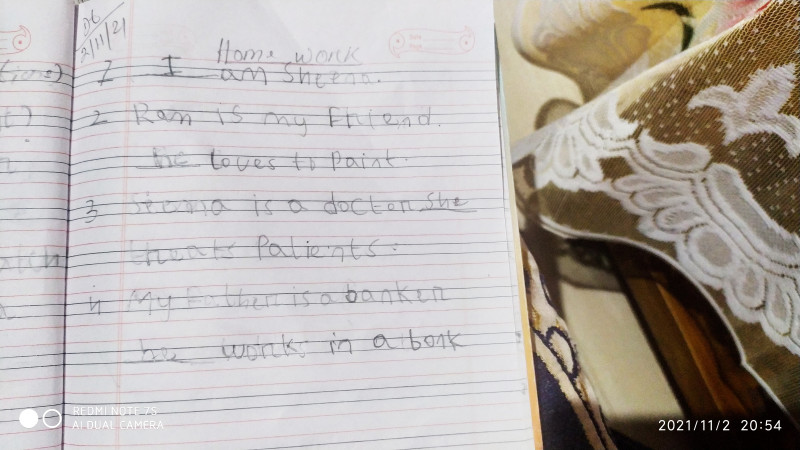 Dt
2/11/21
Home work
1 I am Sheena.
2 Ram is my Friend.
he loves to Paint.
3 Seema is a doctor she
treats Patients.
4 My Father is a banker
he works in a bank
REDMI NOTE 7S
AI DUAL CAMERA
2021/11/2 20:54